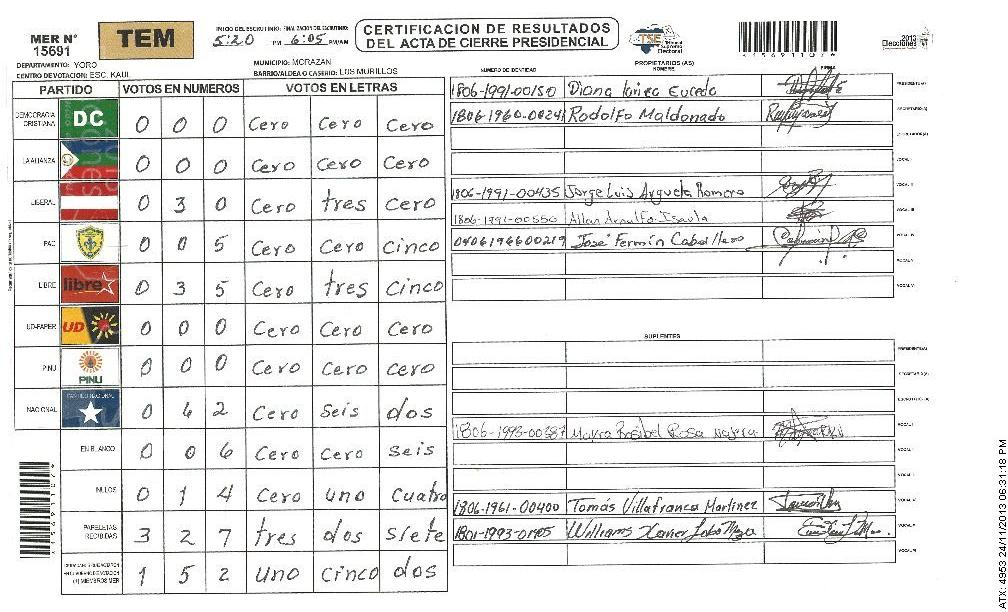 MER N° 15691
TEM
INICIO DEL ESCRUTINIO: 5:20 PM FINALIZACION DEL ESCRUTINIO: 6:05 PM/AM
CERTIFICACION DE RESULTADOS
DEL ACTA DE CIERRE PRESIDENCIAL
TSE Tribunal Supremo Electoral
2013 Elecciones
DEPARTAMENTO: YORO
MUNICIPIO: MORAZAN
CENTRO DE VOTACION: ESC. KAUL
BARRIO/ALDEA O CASERIO: LOS MURILLOS
PARTIDO VOTOS EN NUMEROS VOTOS EN LETRAS
DEMOCRACIA CRISTIANA DC 0 0 0 Cero Cero Cero
LA ALIANZA 0 0 0 Cero Cero Cero
LIBERAL 0 3 0 Cero tres cero
PAC 0 0 5 Cero Cero cinco
LIBRE libre 0 3 5 Cero tres cinco
UD-FAPER UD 0 0 0 Cero Cero Cero
PINU PINU 0 0 0 Cero Cero cero
NACIONAL PARTIDO NACIONAL 0 6 2 Cero seis dos
EN BLANCO 0 0 6 Cero Cero seis
NULOS 0 1 4 Cero uno cuatro
PAPELETAS RECIBIDAS 3 2 7 tres dos siete
(+) MIEMBROS MER 1 5 2 uno cinco dos
PROPIETARIOS (AS)
NUMERO DE IDENTIDAD NOMBRE FIRMA
1806-1991-00150 Diana PRESIDENTE(A)
1806-1960-00241 Rodolfo Maldonado SECRETARIO(A)
ESCRUTADOR(A)
VOCAL I
1806-1991-00435 Jorge Luis Argueta Romero VOCAL II
1806-1991-00550 Allan VOCAL III
0406196600219 José Fermin Caballero VOCAL IV
VOCAL V
VOCAL VI
SUPLENTES
PRESIDENTE(A)
SECRETARIO(A)
ESCRUTADOR(A)
1806-1993-00387 Mayra Rosibel Rosa Najera VOCAL I
VOCAL II
VOCAL III
1806-1961-00400 Tomás Villafranca Martinez VOCAL IV
1801-1993-01405 Williams Xavier Lobo VOCAL V
VOCAL VI
*15691107*
ATX: 4953 24/11/2013 06:31:18 PM